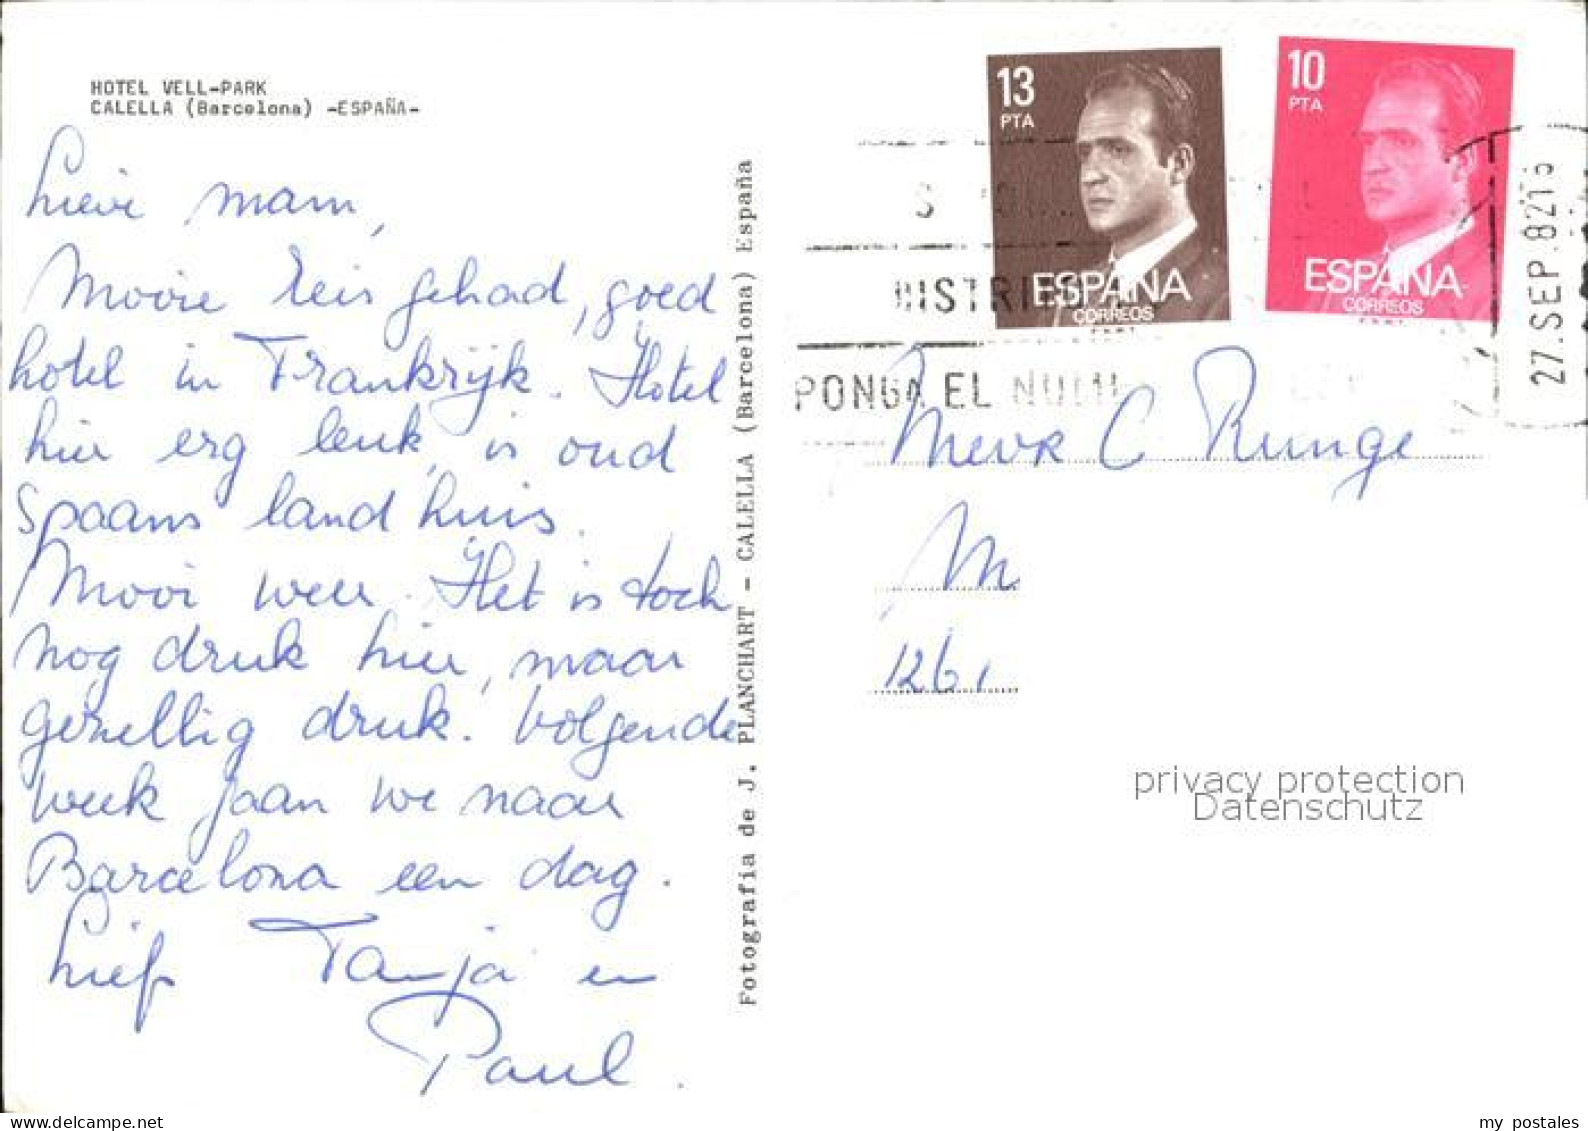 HOTEL VELL-PARK
CALELLA (Barcelona) -ESPAÑA-
Lieve mam,
Mooie reis gehad, goed
hotel in Frankrijk. Hotel
hier erg leuk, is oud
Spaans landhuis.
Mooi weer. Het is toch
nog druk hier, maar
gezellig druk. Volgende
week gaan we naar
Barcelona een dag.
Liefs Tanja en
Paul.
Fotografia de J. PLANCHART - CALELLA (Barcelona) España
13
PTA
ESPAÑA
CORREOS
10
PTA
ESPAÑA
CORREOS
PONGA EL
27.SEP.82
Mevr C Runge
M
1261
privacy protection
Datenschutz
my postales